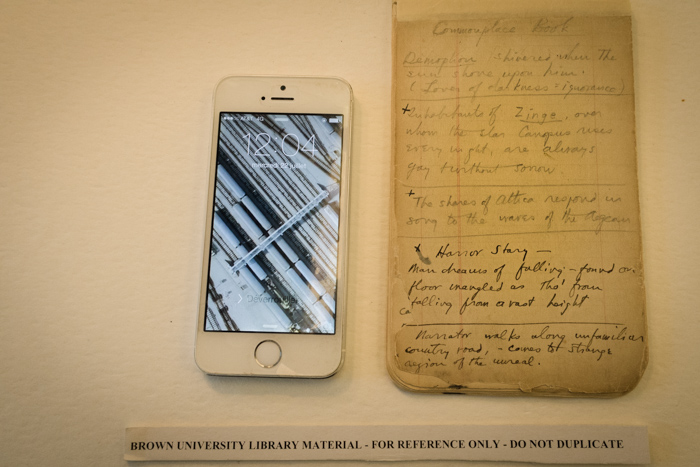 AT&T 4G
12:04
Commonplace Book
Demophon shivered when the
sun shone upon him.
(Lover of darkness = ignorance)
Inhabitants of Zinge, over
whom the star Canopus rises
every night, are always
gay & without sorrow.
The shores of Attica respond in
song to the waves of the Aegean
Horror Story —
Man dreams of falling - found on
floor mangled as tho' from
falling from a vast height
Narrator walks along unfamiliar
country road, - comes to strange
region of the unreal.
BROWN UNIVERSITY LIBRARY MATERIAL - FOR REFERENCE ONLY - DO NOT DUPLICATE